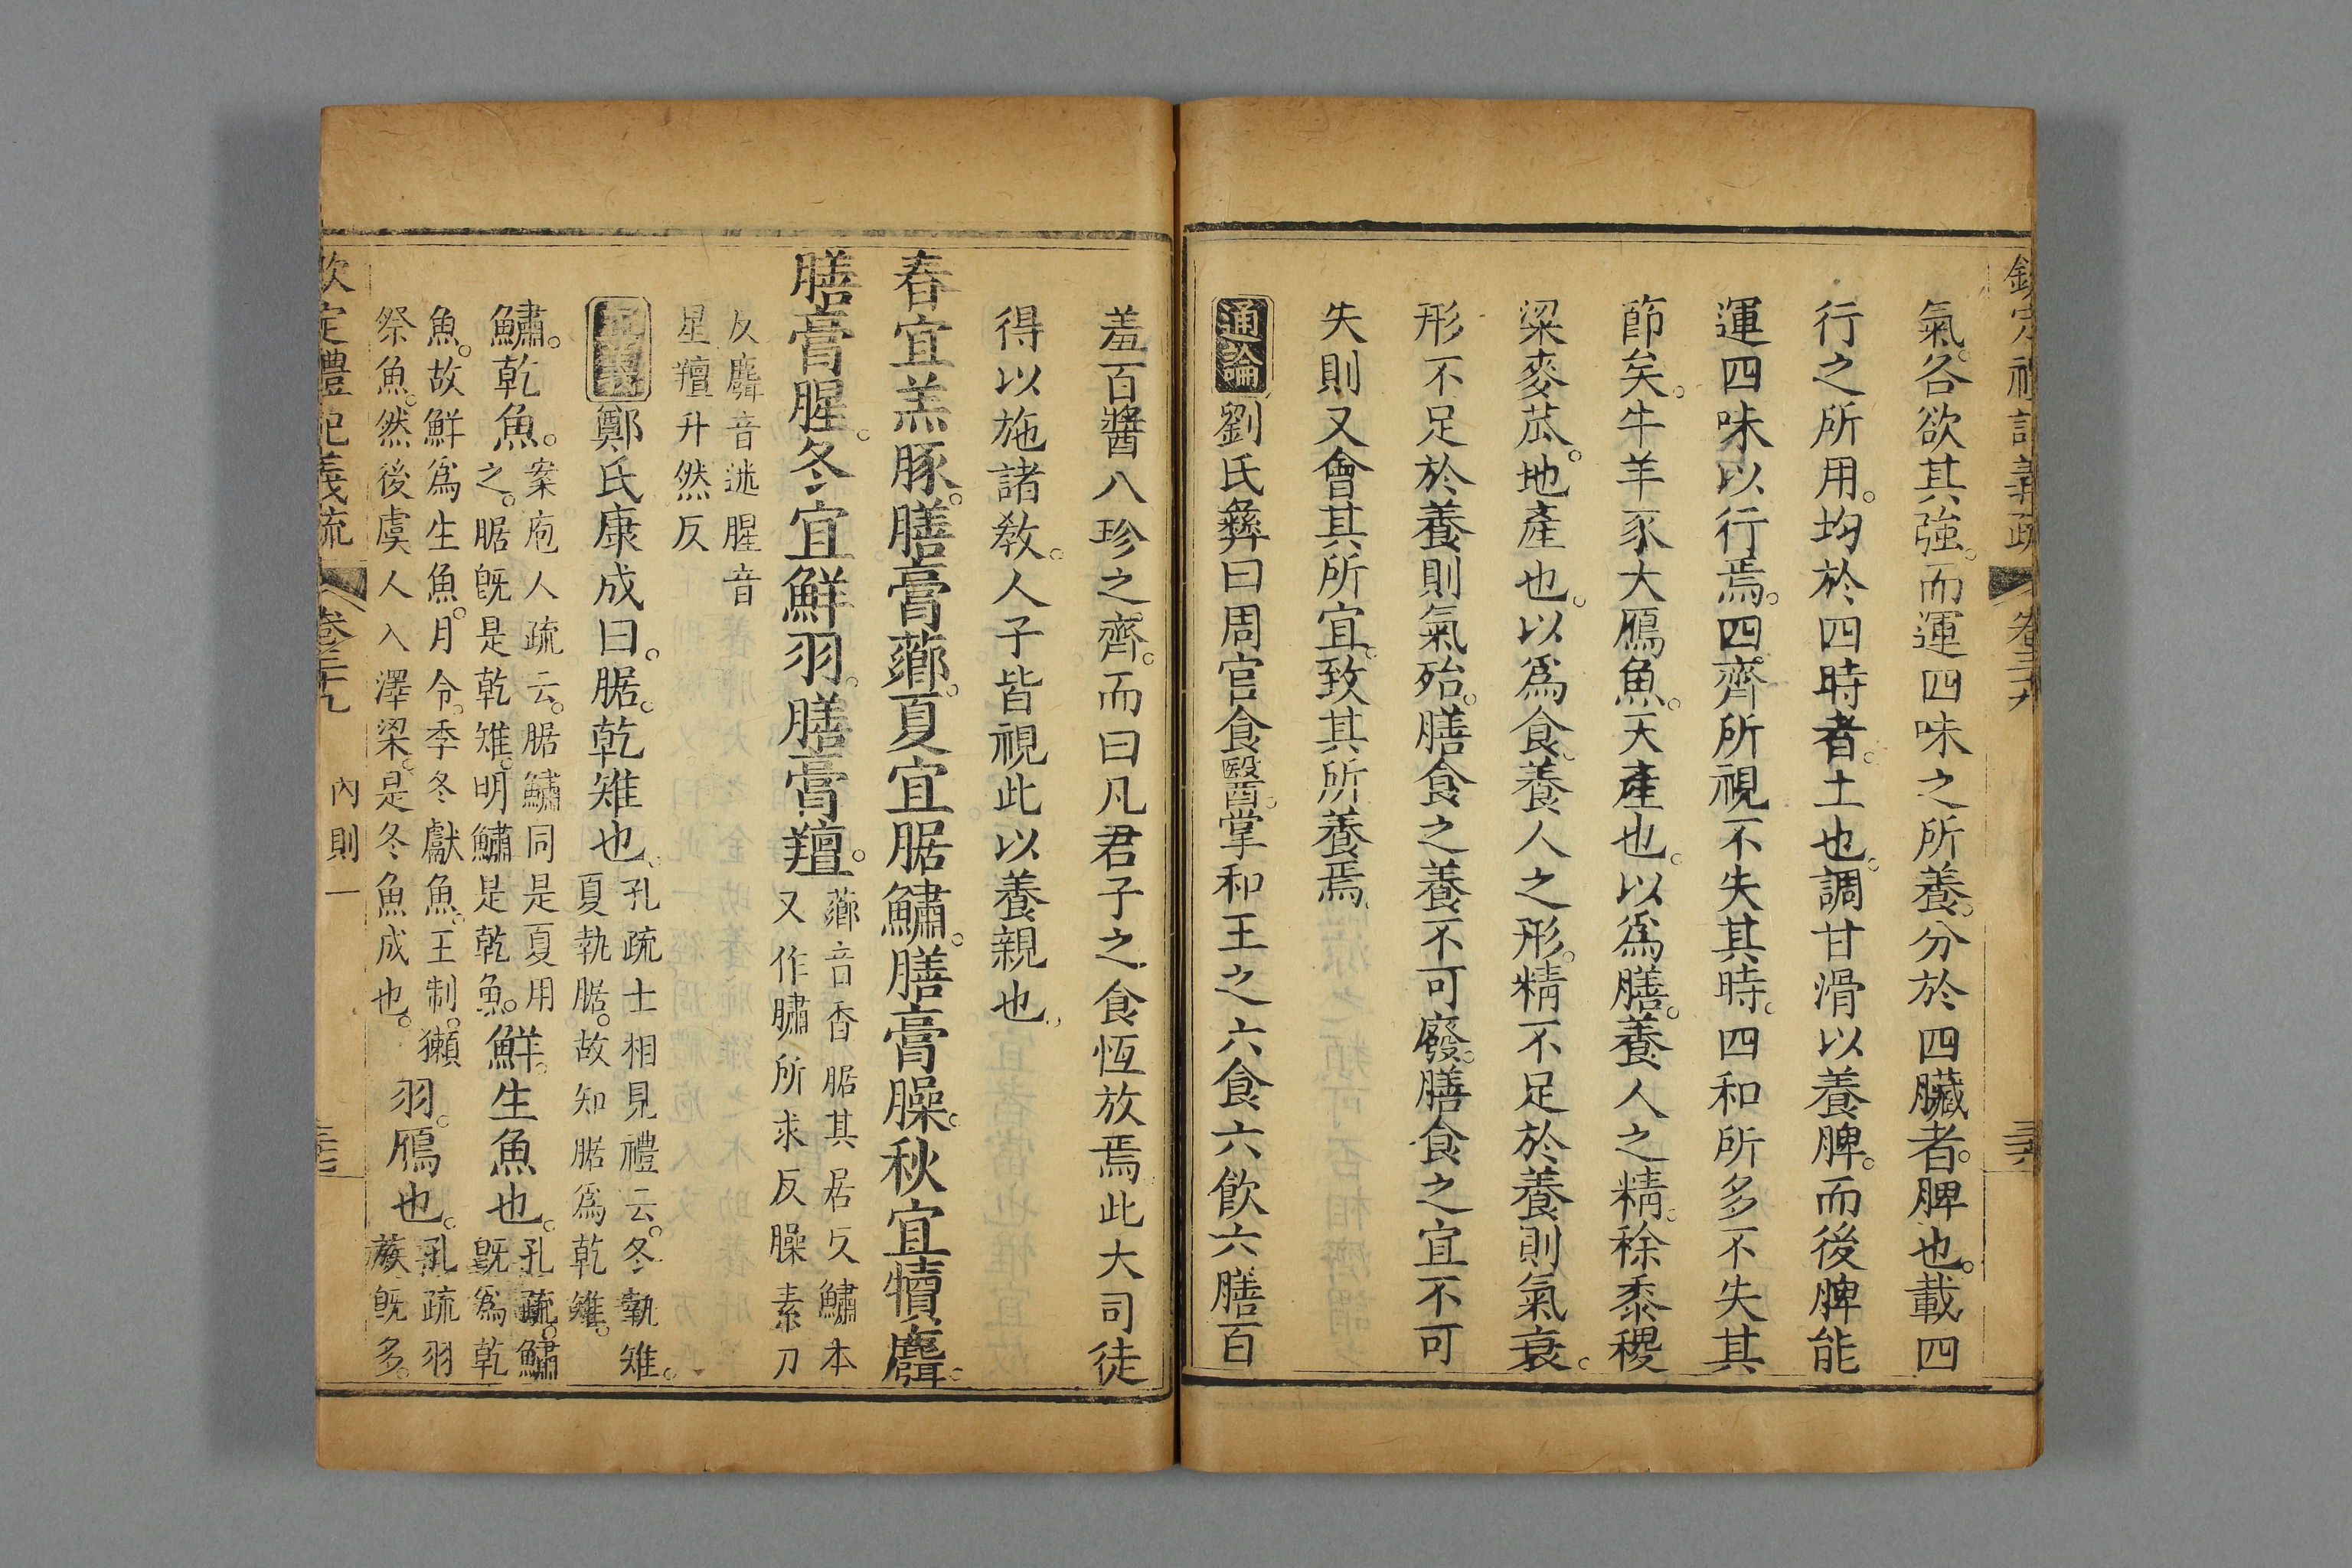 欽定禮記義疏 卷三十九 三六
氣各欲其強。而運四味之所養。分於四臟者。脾也。載四
行之所用。均於四時者。土也。調甘滑以養脾。而後脾能
運四味以行焉。四齊所視不失其時。四和所多不失其
節矣。牛羊豕犬鴈魚。天產也。以爲膳。養人之精。稌黍稷
粱麥苽。地產也。以爲食。養人之形。精不足於養則氣衰。
形不足於養則氣殆。膳食之養不可廢。膳食之宜不可
失則又會其所宜。致其所養焉。
通論 劉氏彝曰周官食醫。掌和王之六食六飲六膳百
羞百醬八珍之齊。而曰凡君子之食恆放焉。此大司徒
得以施諸教。人子皆視此以養親也。
春宜羔豚。膳膏薌。夏宜腒鱐。膳膏臊。秋宜犢麛。
膳膏腥。冬宜鮮羽。膳膏羶。
薌音香腒其居反鱐本
又作驌所求反臊素刀
反麛音迷腥音
星羶升然反
鄭氏康成曰。腒。乾雉也。
孔疏士相見禮云。冬執雉。
夏執腒。故知腒爲乾雉。
鱐。乾魚。
案庖人疏云。腒鱐同是夏用
之。腒旣是乾雉。明鱐是乾魚。
鮮。生魚也。
孔疏。鱐
旣爲乾
魚。故鮮爲生魚。月令。季冬獻魚。王制。獺
祭魚。然後虞人入澤梁。是冬魚成也。
羽。鴈也。
孔疏羽
蔟旣多。
欽定禮記義疏 卷三十九 內則一 三七